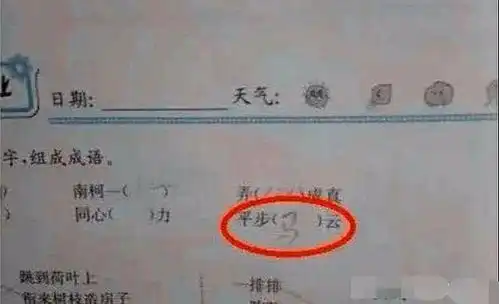 业
日期: 天气:
字,组成成语。
) 南柯一( ) 弄( )成真
) 同心( )力 平步(马)云
跳到荷叶上 一排排
衔来树枝造房子